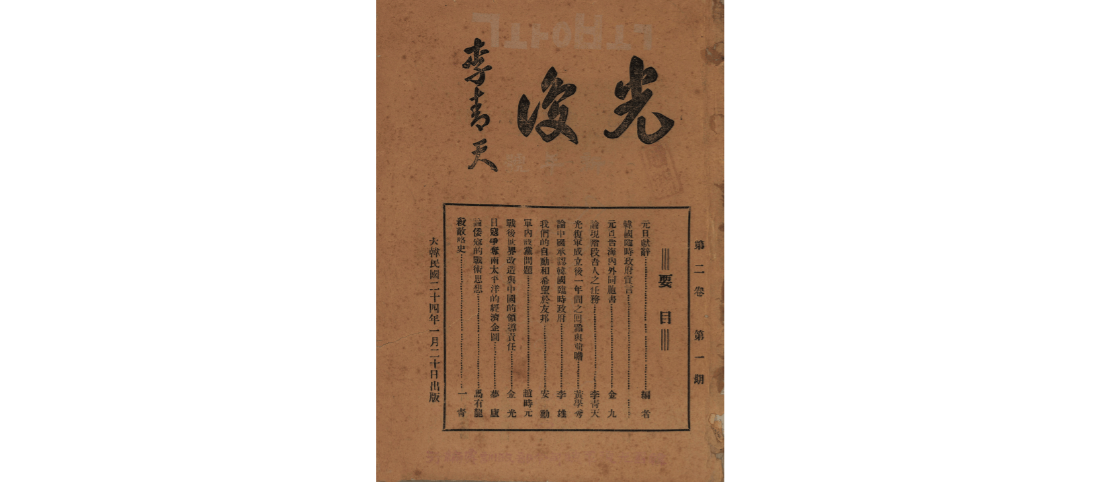 光復
李青天
第二卷 第一期
要目
元旦獻辭 編者
韓國臨時政府宣言
元旦告海內外同胞書 金九
論現階段吾人之任務 李青天
光復軍成立後一年間之回顧與展望 黃學秀
論中國承認韓國臨時政府 李雄
我們的自勵和希望於友邦 安勳
軍內政黨問題 趙時元
戰後世界改造與中國的領導責任 金光
日寇爭奪南太平洋的經濟企圖 夢廬
論倭鄉的戰術思想 馬有龍
殺敵略史 一青
大韓民國二十四年一月二十日出版